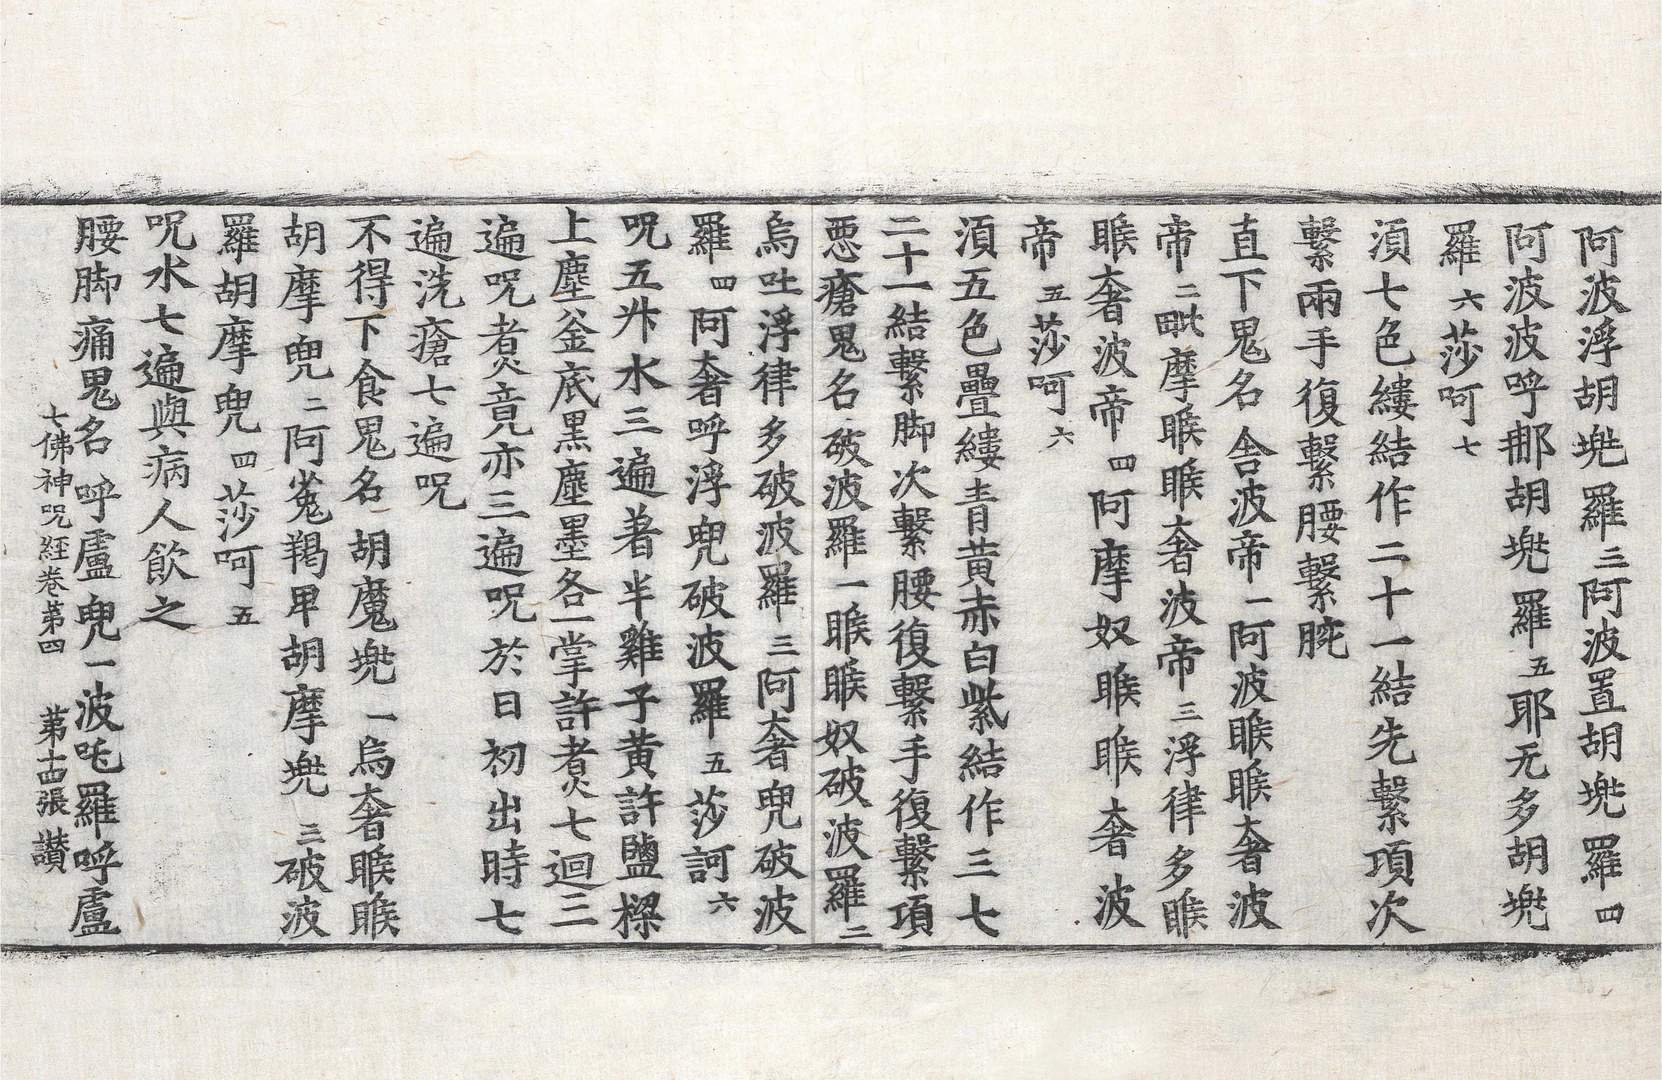 阿波浮胡兠羅三阿波置胡兠羅四
阿波波呼那胡兠羅五耶无多胡兠
羅六莎呵七
湏七色縷結作二十一結先繫項次
繫兩手復繫腰繫䏶
直下鬼名舍波帝一阿波睺睺奢波
帝二毗摩睺睺奢波帝三浮律多睺
睺奢波帝四阿摩奴睺睺奢波
帝五莎呵六
湏五色疊縷青黃赤白紫結作三七
二十一結繫脚次繫腰復繫手復繫項
惡瘡鬼名破波羅一睺睺奴破波羅二
烏吐浮律多破波羅三阿奢兜破波
羅四阿奢呼浮兜破波羅五莎訶六
呪五升水三遍著半雞子黃許鹽樑
上塵釜底黑塵墨各一掌許煮七迴三
遍呪煮竟亦三遍呪於日初出時七
遍洗瘡七遍呪
不得下食鬼名胡魔兠一烏奢睺睺
胡摩兜二阿㝹羯卑胡摩兠三破波
羅胡摩兜四莎呵五
呪水七遍與病人飲之
腰脚痛鬼名呼盧兜一波吒羅呼盧
七佛神呪経卷第四 第十四張 讃